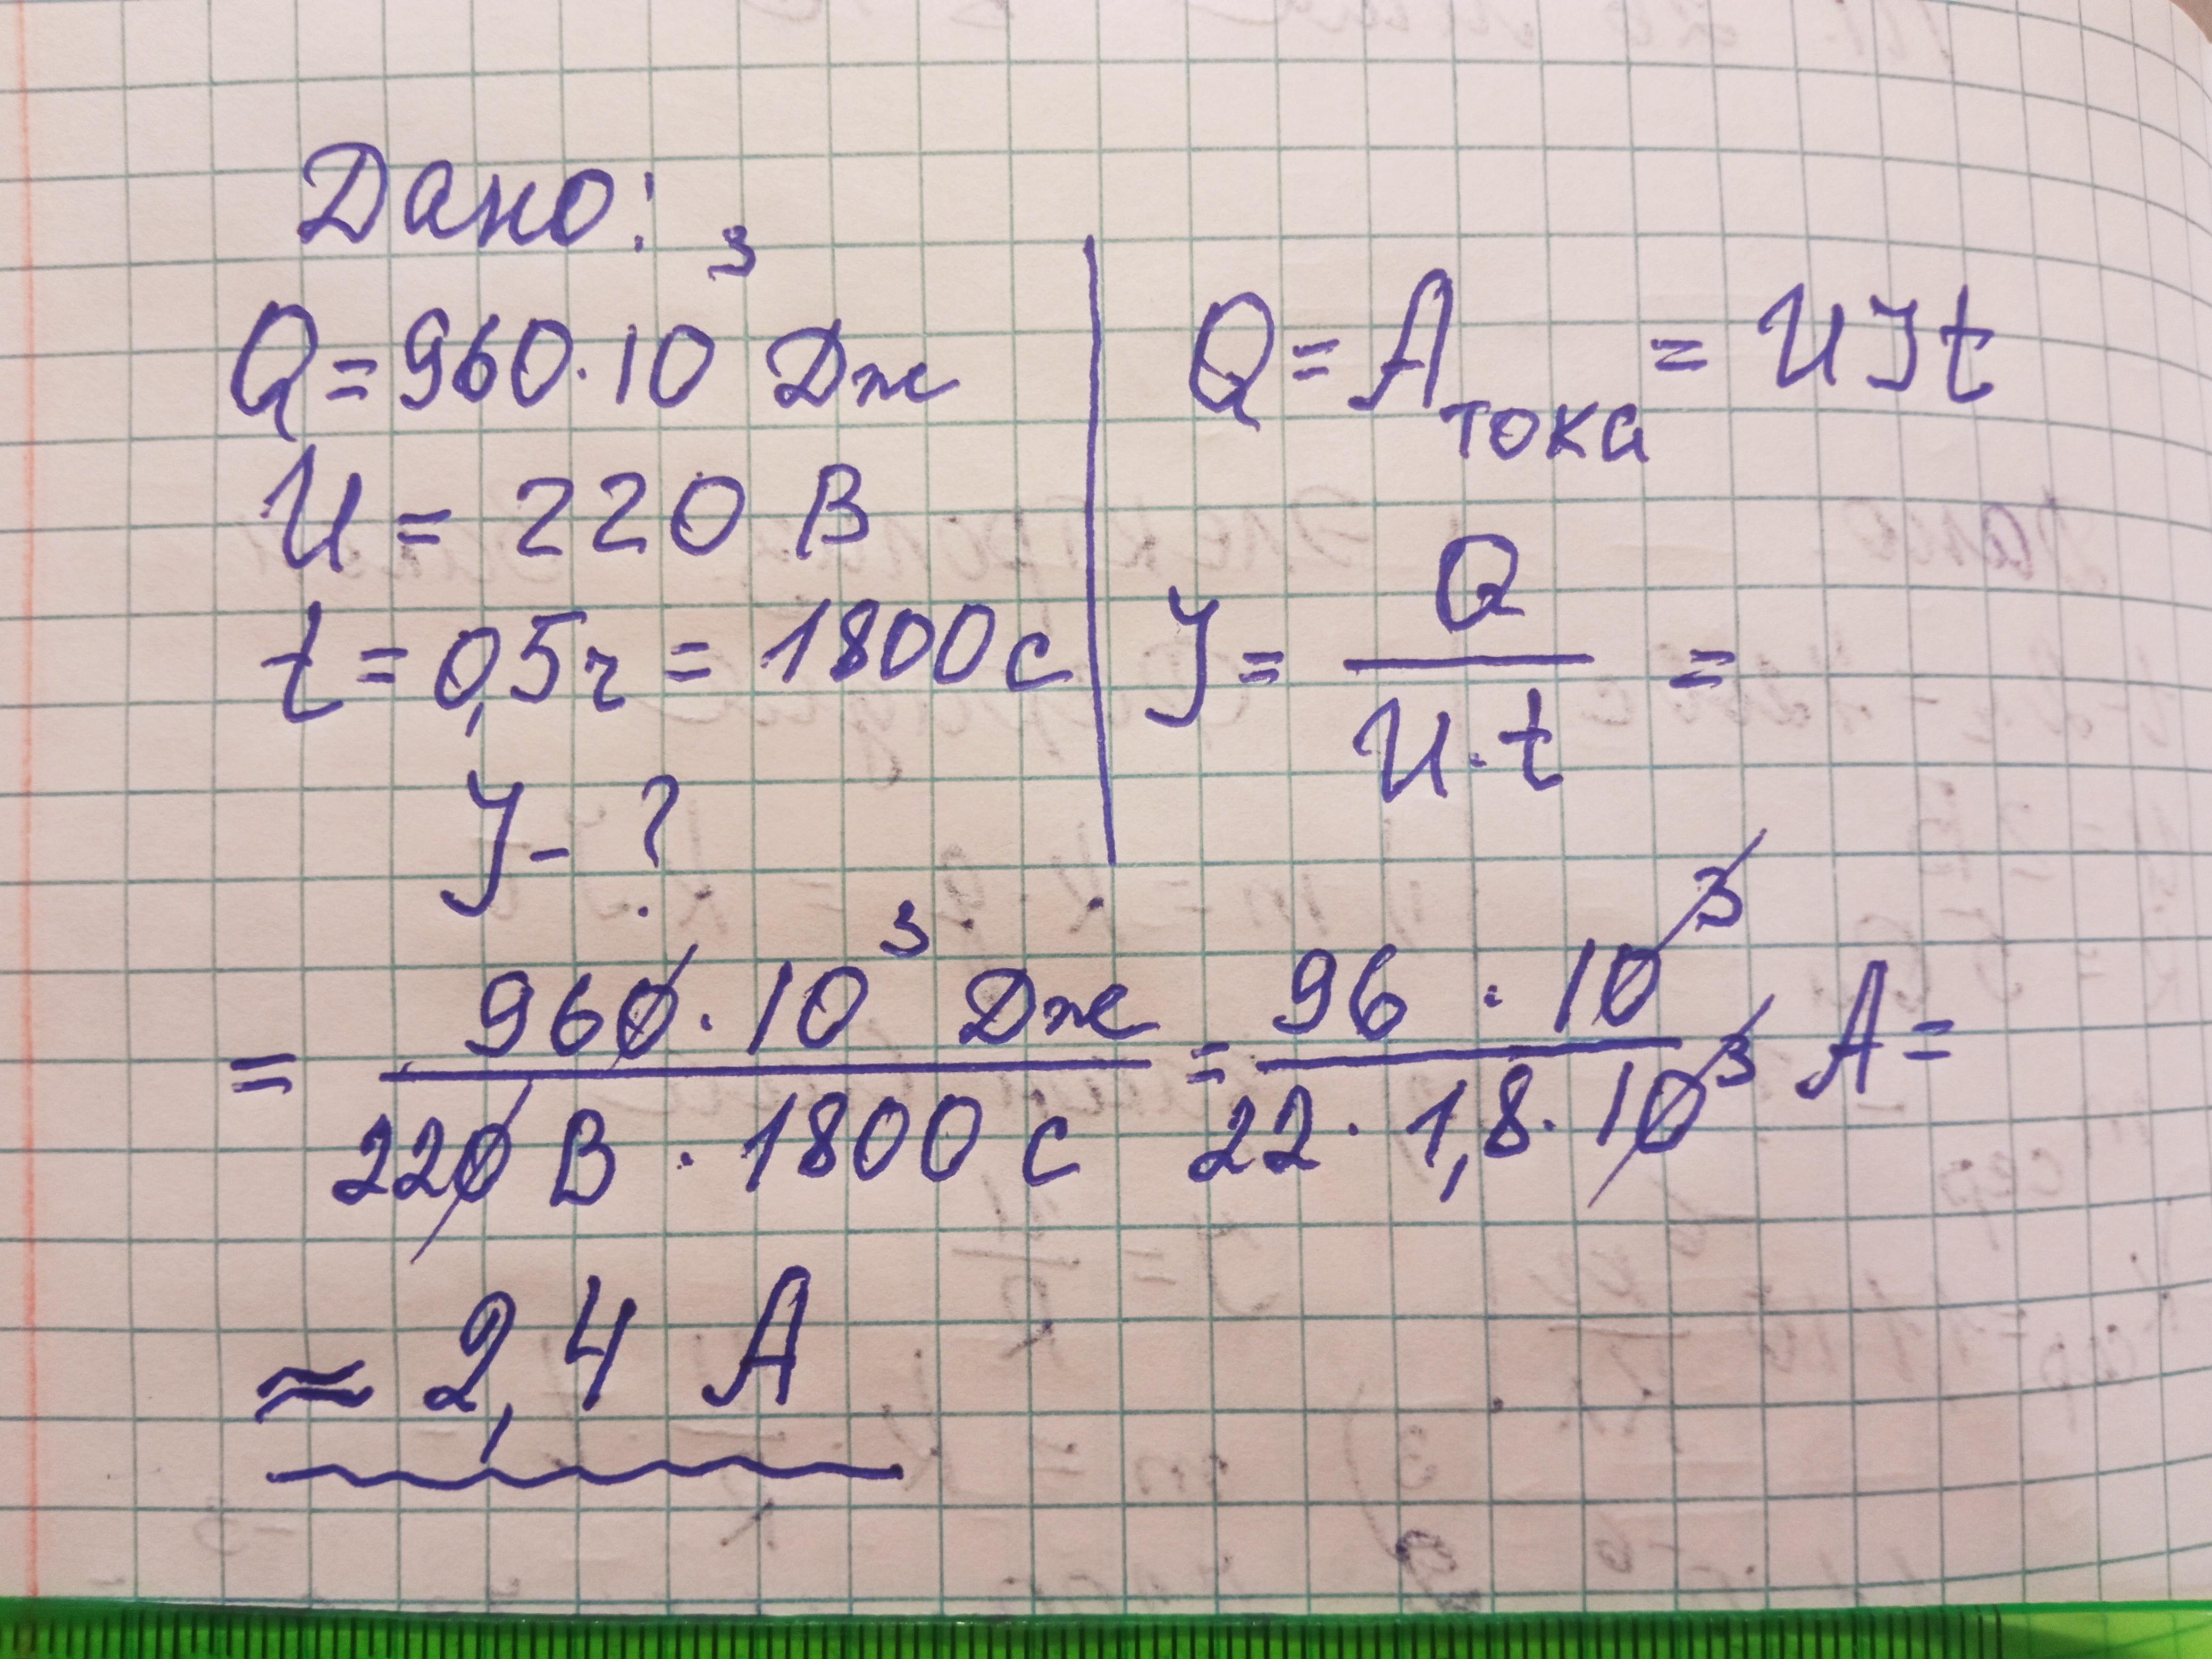 Дано:
Q = 960·10³ Дж
U = 220 В
t = 0,5ч = 1800 с
J - ?
Q = A тока = UJt
J = Q / U·t =
= 960·10³ Дж / 220 В · 1800 с = 96 · 10³ / 22 · 1,8 · 10³ А =
≈ 2,4 А